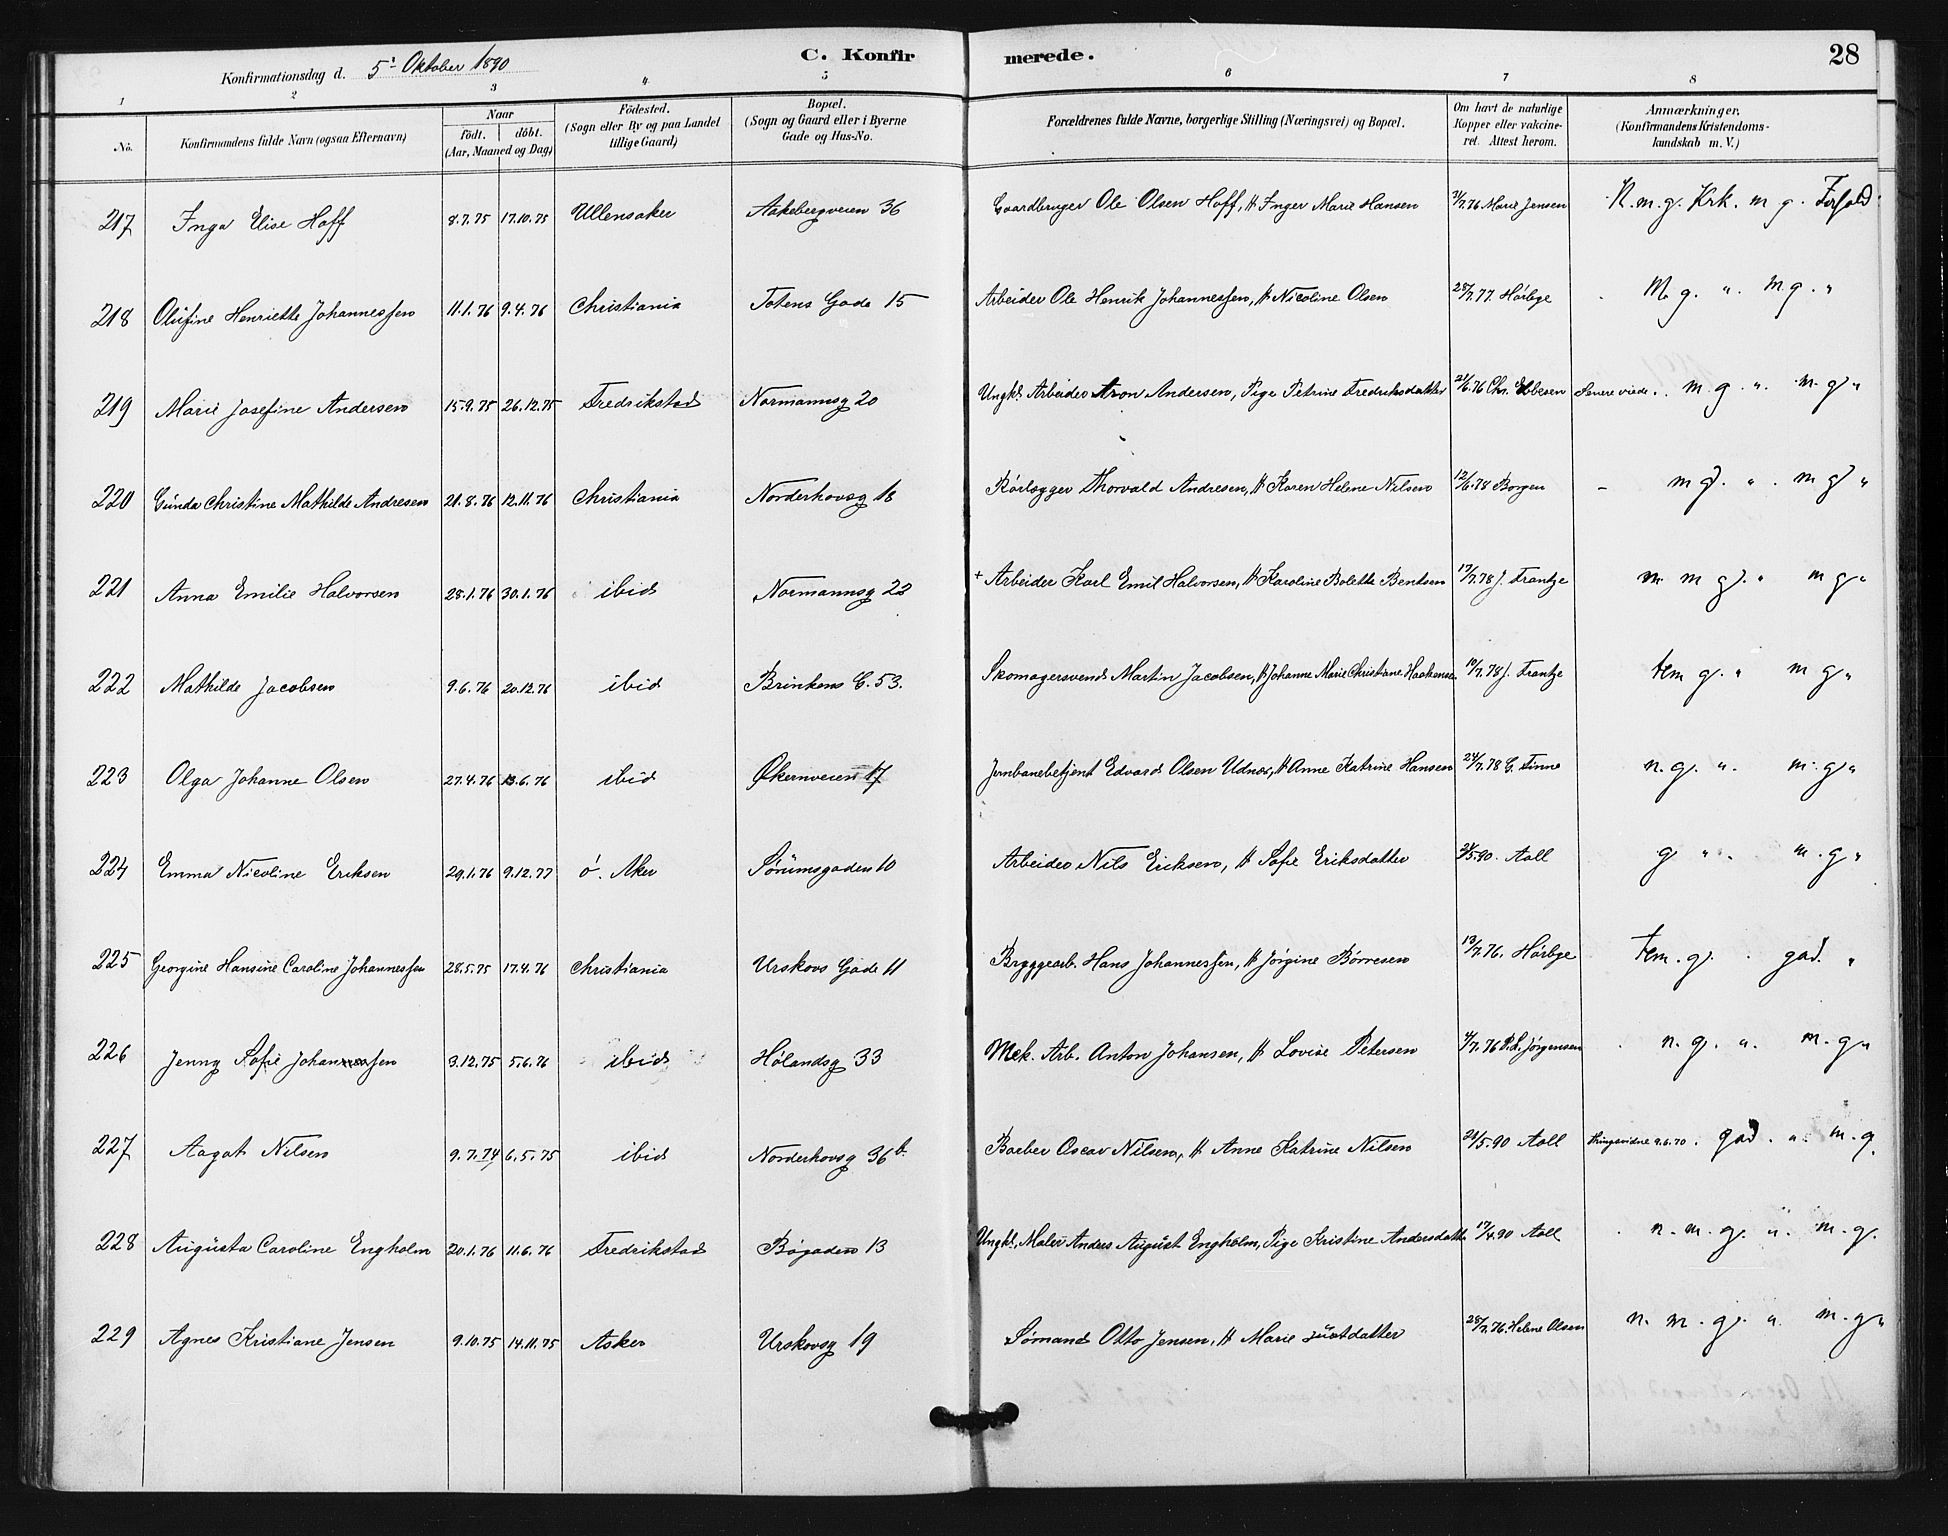 C. Konfirmerede.
28
Konfirmationsdag d. 5' Oktober 1890
1 2 3 4 5 6 7 8
No. Konfirmandens fulde Navn (ogsaa Efternavn) Naar födt. döbt. (Aar, Maaned og Dag) Födested. (Sogn eller By og paa Landet tillige Gaard) Bopæl. (Sogn og Gaard eller i Byerne Gade og Hus-No. Forældrenes fulde Navne, borgerlige Stilling (Næringsvei) og Bopæl. Om havt de naturlige Kopper eller vakcineret. Attest herom. Anmærkninger. (Konfirmandens Kristendomskundskab m. V.)
217 Inga Elise Hoff 8.7.75 17.10.75 Ullensaker Aakebergveien 36 Gaardbruger Ole Olsen Hoff, H Inger Marie Hansen /7.76 Marie Jensen N.m.g. Krk. m g. Forhold
218 Olufine Henriette Johannessen 11.1.76 9.4.76 Christiania Totens Gade 15 Arbeider Ole Henrik Johannessen, H Nicoline Olsen 28/7.77. Hørbye M. g. " m g. "
219 Marie Josefine Andersen 15.9.75 26.12.75 Fredrikstad Normannsg 20 Ungkl. Arbeider Aron Andersen, Pige Petrine Fredriksdatter 21/6.76 Chr. Ebbesen Senere viede. m. g. " m. g "
220 Gunda Christine Mathilde Andresen 21.8.76 12.11.76 Christiania Norderhovsg 18 Rørlægger Thorvald Andresen, H Karen Helene Nilsen 12/6.78 Borgen – m g. " m g "
221 Anna Emilie Halvorsen 28.1.76 30.1.76 ibid Normannsg 22 + Arbeider Karl Emil Halvorsen, H Karoline Bolette Bentsen 17/7.78 J. Frantze m g. " m g "
222 Mathilde Jacobsen 9.6.76 20.12.76 ibid Brinkens G. 53. Skomagersvend Martin Jacobsen, H Johanne Marie Christiane Haakensen 10/7.78 J. Frantze tem g. " m g "
223 Olga Johanne Olsen 27.4.76 13.6.76 ibid Økernveien 17 Jernbanebetjent Edvard Olsen Udnæs, H Anne Katrine Hansen 24/7.78 G. Finne n. g. " m. g "
224 Emma Nicoline Eriksen 29.1.76 9.12.77 Ö. Aker Sørumsgaden 10 Arbeider Nils Eriksen, H Sofie Eriksdatter /5.90. Aall g " m. g "
225 Georgine Hansine Caroline Johannessen 28.5.75 17.4.76 Christiania Urskovs Gade 11 Bryggearb. Hans Johannessen, H Jørgine Børresen 13/7.76. Hørbye tem. g. " god. "
226 Jenny Sofie Johansen 3.12.75 5.6.76 ibid Hølandsg 33 Mek. Arb. Anton Johansen, H Lovise Petersen 4/7.76 P.L. Jørgensen n. g. " m. g "
227 Aagot Nilsen 9.7.74 6.5.75 ibid Norderhovsg 36 b. Barber Oscar Nilsen, H Anne Katrine Nilsen 24/5.90 Aall 9.6.70. god. " m. g.
228 Augusta Caroline Engholm 20.1.76 11.6.76 Fredrikstad Bøgaden 13 Ungkl. Maler Anders August Engholm, Pige Kristine Andersdatter 17/4.90 Aall n. m. g. " m. g.
229 Agnes Kristiane Jensen 9.10.75 14.11.75 Asker Urskovsg 19 Sømand Otto Jensen, H Marie Justdatter 28/7.76. Helene Olsen n. m. g. " m. g "